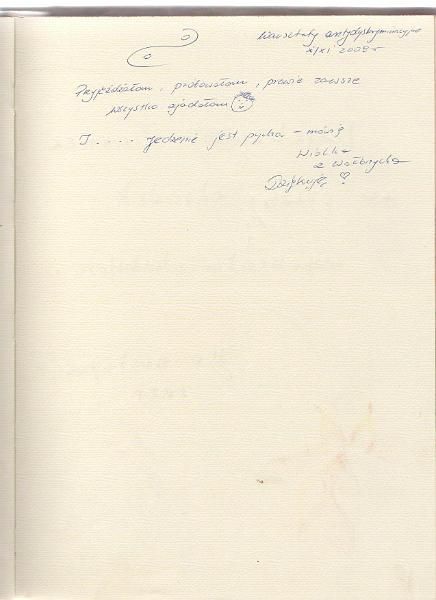 Warsztaty antydyskryminacyjne
X/XI 2009 r
Przyjeżdżałam, próbowałam, prawie zawsze
wszystko zjadałam
I .... jedzenie jest pycha - mówię
Wiolka
z Wałbrzycha
Dziękuję